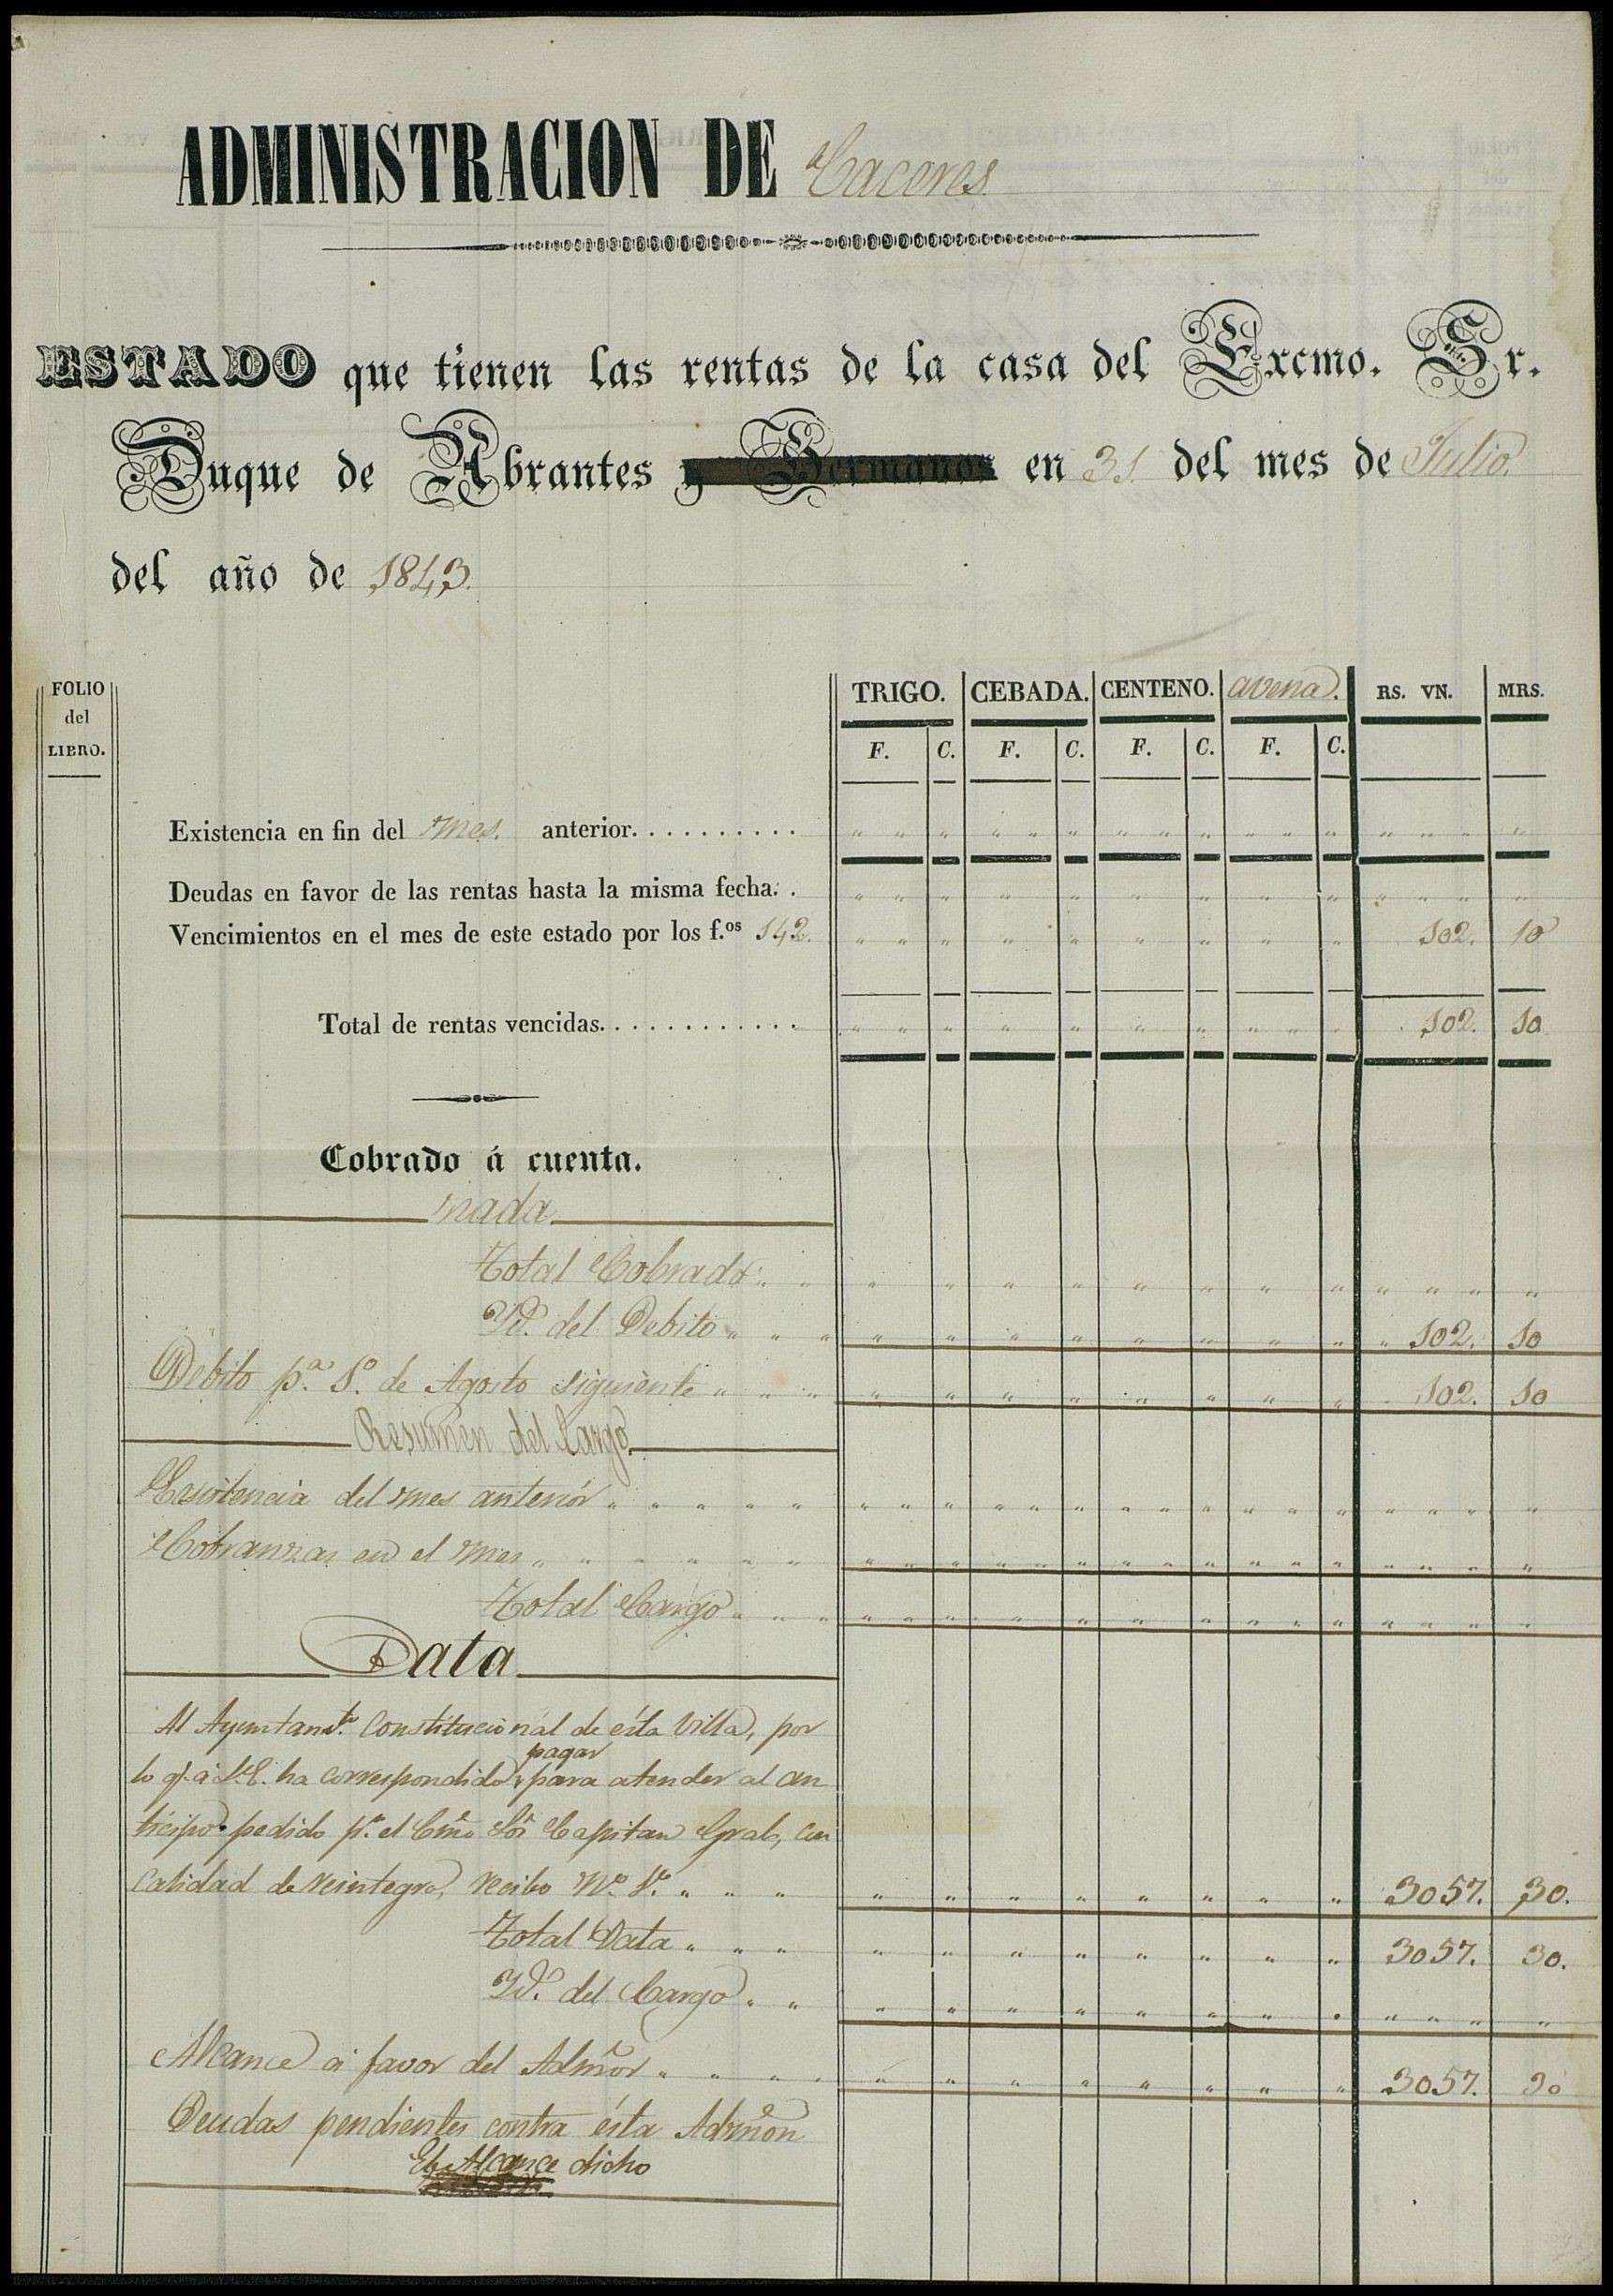 ADMINISTRACION DE Caceres
ESTADO que tienen las rentas de la casa del Excmo. Sr.
Duque de Abrantes y Hermanos en 31 del mes de Julio.
del año de 1843.
FOLIO del LIBRO.
TRIGO. CEBADA. CENTENO. avena. RS. VN. MRS.
F. C. F. C. F. C. F. C.
Existencia en fin del mes. anterior. . . . . . . . . . " " " " " " " " " " " " " " " "
Deudas en favor de las rentas hasta la misma fecha. . " " " " " " " " " " " " "
Vencimientos en el mes de este estado por los f.os 142. " " " " " " " " " 102. 10
Total de rentas vencidas. . . . . . . . . . . . " " " " " " " " " " 102. 10
Cobrado á cuenta.
nada
Total Cobrado " " " " " " " " " " " " " "
Yd. del Debito " " " " " " " " " " " " 102. 10
Debito p.a 1.o de Agosto siguiente " " " " " " " " " " " 102. 10
Resumen del Cargo
Existencia del mes anteriór " " " " " " " " " " " " " " " " " " " "
Cobranzas en el mes " " " " " " " " " " " " " " " " " " " " "
Total Cargo " " " " " " " " " " " " " " " " "
Data
Al Ayuntam.to Constitucionál de ésta Villa, por
pagar
lo q.e á S.E. ha correspondido para atender al an
ticipo pedido p.r el Cmo Sor Capitan Gral, con
Calidad de reintegro, recibo N.o 1.o " " " " " " " " " " " 3057. 30.
Total Data " " " " " " " " " " " 3057. 30.
Yd. del Cargo " " " " " " " " " " " " " "
Alcance á favor del Admor " " " " " " " " " " " " 3057. 30
Deudas pendientes contra ésta Admon
El Alcance dicho